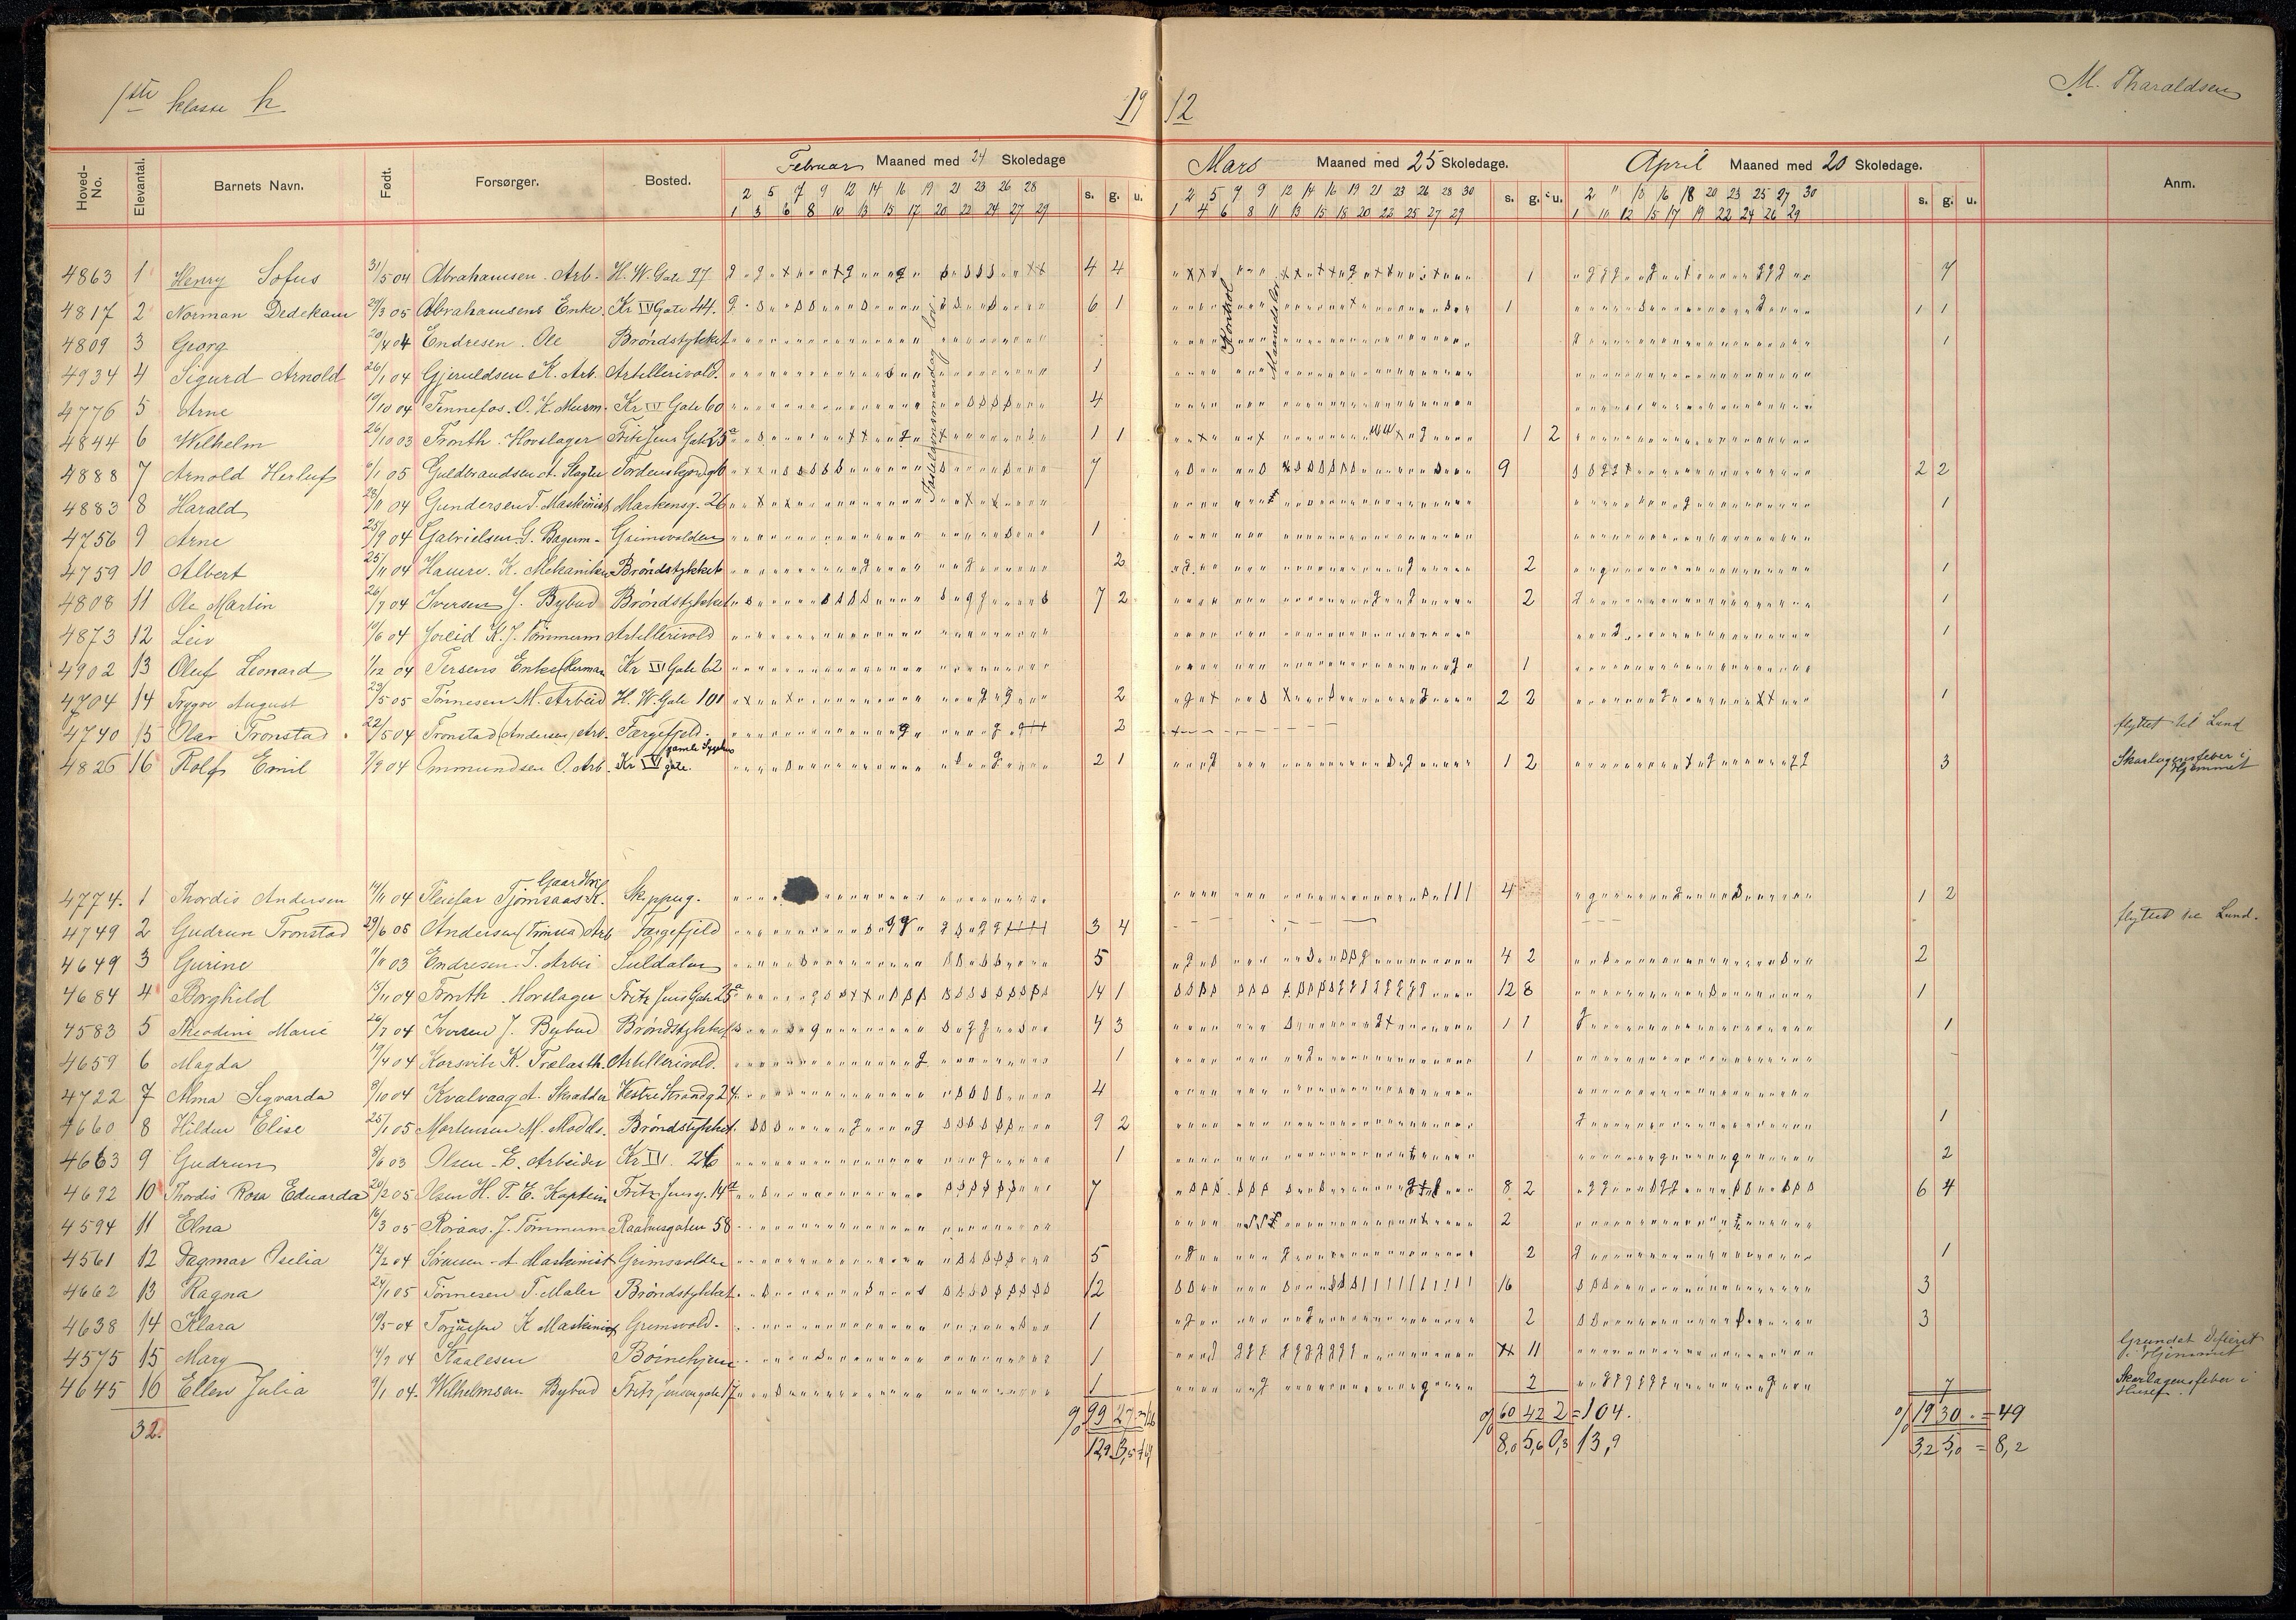 1ste klasse h
19 12
M. Tharaldsen
Hoved-No. Elevantal. Barnets Navn. Født. Forsørger. Bosted. Februar Maaned med 24 Skoledage s. g. u. Mars Maaned med 25 Skoledage. s. g. u. April Maaned med 20 Skoledage. s. g. u. Anm.
2 5 7 9 12 14 16 19 21 23 26 28
1 3 6 8 10 13 15 17 20 22 24 27 29
2 5 7 9 12 14 16 19 21 23 26 28 30
1 4 6 8 11 13 15 18 20 22 25 27 29
2 11 13 16 18 20 23 25 27 30
1 10 12 15 17 19 22 24 26 29
Fastelavnsmandag lov.
Kontrol
Maanedslov
4863 1 Henry Sofus 31/5 04 Abrahamsen. Arb. H. W. Gate 97 4 4 1 7
4817 2 Norman Dedekam 29/3 05 Abrahamsens Enke. Kr IV Gate 44. 6 1 1 1 1
4809 3 Georg 20/4 04 Endresen. Ole Brøndstykket 1
4934 4 Sigurd Arnold 26/1 04 Gjeruldsen K. Arb. Artillerivold. 1
4776 5 Arne 19/10 04 Finnefos. O. K. Murm. Kr IV Gate 60 4
4844 6 Wilhelm 26/10 03 Fronth. Hovslager Fritz Jens Gate 25a 1 1 1 2
4888 7 Arnold Herluf 6/1 05 Guldbrandsen A. Slagter Tordenskjoldg 6 7 9 2 2
4883 8 Harald 28/11 04 Gundersen T. Maskinist Markensg. 26 1
4756 9 Arne 25/9 04 Gabrielsen G. Bagerm. Grimsvolden 1
4759 10 Albert 25/11 04 Hauure. K. Mekaniker Brøndstykket 2 2 1
4808 11 Ole Martin 26/7 04 Iversen J. Bybud Brøndstykket 7 2 2 1
4873 12 Leiv 19/6 04 K. J. Tømmerm Artillerivold 1
4902 13 Oluf Leonard 1/12 04 Enke (Herman Kr IV Gate 62 1
4704 14 Trygve August 29/5 05 Tønnesen M. Arbeid H. W. Gate 101 2 2 2 1
4740 15 Olav Tronstad 22/5 04 Tronstad (Andersen) Arb. Færgefjeld. 2 flyttet til Lund
4826 16 Rolf Emil 7/9 04 Ommundsen O. Arb. Kr IV gate. gamle Sygehus 2 1 1 2 3 Skarlagensfeber i Hjemmet
4774. 1 Thordis Andersen 14/11 04 Pleiefar Tjømsaas K. Gaardbr Skippug. 4 1 2
4749 2 Gudrun Tronstad 29/6 05 Andersen (Tronstad) Arb Færgefjeld 3 4 flyttet til Lund.
4649 3 Gurine 11/11 03 Endresen. J. Arbei Suldalen 5 4 2 2
4684 4 Borghild 15/11 04 Fronth. Hovslager Fritz Jens Gate 25a 14 1 12 8 1
4583 5 Theodine Marie 26/7 04 Iversen J. Bybud Brøndstykket 4 3 1 1 1
4659 6 Magda 19/4 04 Korsvik K. Trælasth. Artillerivold. 1 1
4722 7 Alma Sigvarda 8/10 04 Kvalvaag A. Skrædder Vestre Strandg 24 4
4660 8 Hildur Elise 25/1 05 Mortensen M. Brøndstykket 9 2 1
4663 9 Gudrun 8/6 03 Olsen. E. Arbeider Kr IV. 26 1 2
4692 10 Thordis Rosa Eduarda 20/2 05 Olsen H. P. E. Kaptein Fritz Jensg. 14a 7 8 2 6 4
4594 11 Elna 16/3 05 Røiaas. J. Tømmerm Raahusgaten 58 2
4561 12 Dagmar Iselia 12/2 04 Sørensen. A Maskinist Grimsvolden 5 2 1
4662 13 Ragna 24/1 05 Tønnesen T. Maler Brøndstykket 12 16 3
4638 14 Klara 19/5 04 Torjusen K Maskinist Grimsvold. 1 2 3
4575 15 Mary 14/9 04 Staalesen Børnehjem 1 11 Grundet Difterit i Hjemmet
4645 16 Ellen Julia 9/1 04. Wilhelmsen Bybud Fritz Jensensgate 17 1 2 7 Skarlagensfeber i Huset.
32.
% 99 27
12,9 3,5
% 60 42 2 = 104.
8,0 5,6 0,3 13,9
% 19 30 . = 49
3,2 5,0 = 8,2